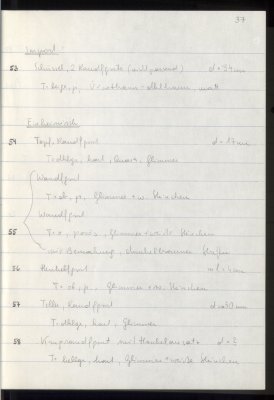 37
Import:
53 Schüssel, 2 Randfgmte (nicht passend) d = 34 cm
T: beige, p, V: rotbraun - dkl braun, matt
Einheimisch
54 Topf, Randfgmt d = 17 cm
T: dklge, hart, Quarz, Glimmer
Wandfgmt
T: ob, p, Glimmer + w. Steinchen
Wandfgmt
55 T: porös, Glimmer + weiße Steinchen
mit Bemalung, dunkelbrauner Streifen
56 Henkelfgmt
T: ob, p, Glimmer + w. Steinchen
57 Teller, Randfgmt d = 30 cm
T: dklge, hart, Glimmer
58 Krugrandfgmt mit Henkelansatz d = ?
T: hellge, hart, Glimmer + weiße Steinchen